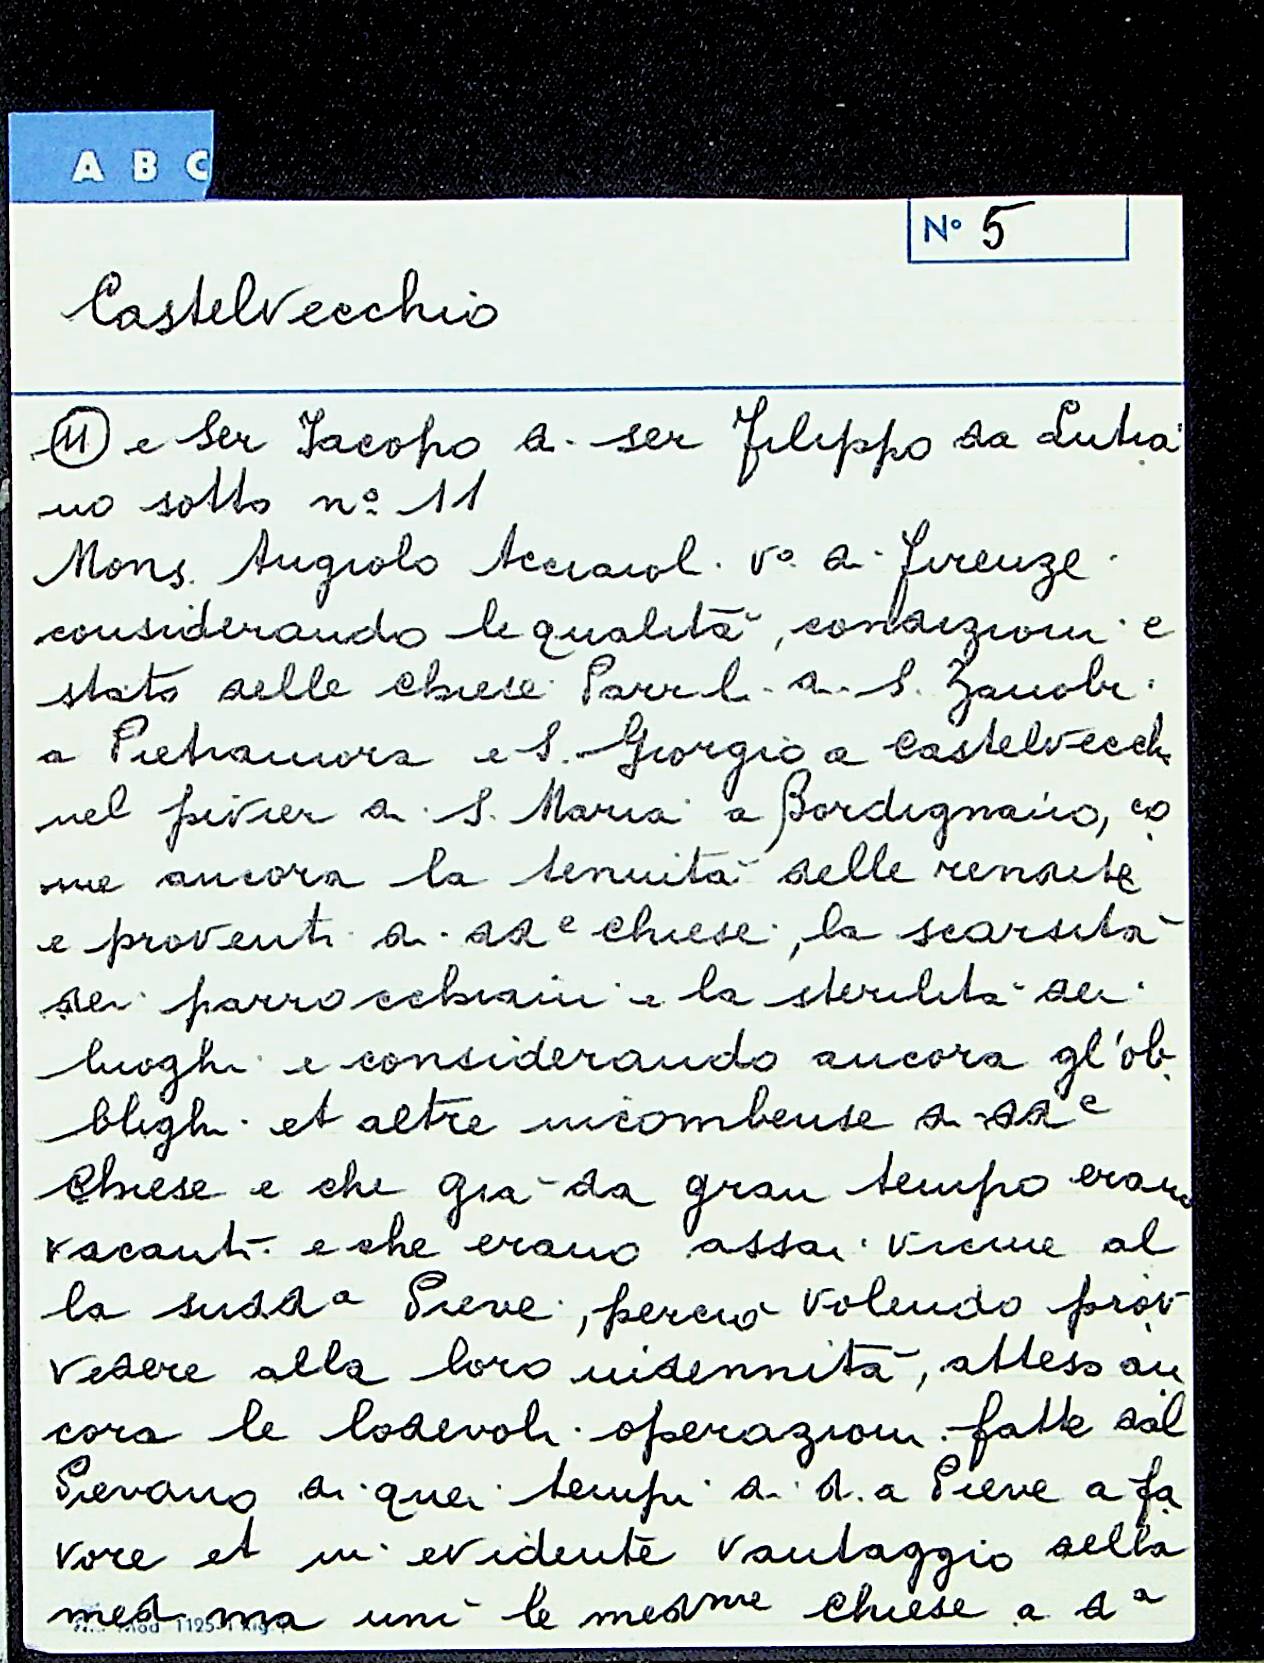 A B C
N° 5
Castelvecchio
(11) e Ser Jacopo di ser Filippo da Lutia
no sotto n° 11
Mons. Angiolo Acciaioli V° di Firenze
considerando le qualità, condizioni e
stato delle chiese Parrli di S. Zanobi
a Pietramora e S. Giorgio a Castelvecch
nel pivier di S. Maria a Bordignano, co
me ancora la tenuità delle rendite
e proventi di dde chiese, la scarsità
dei parrocchiani e la sterilità dei
luoghi e considerando ancora gl'ob
blighi et altre incombense di dde
Chiese e che già da gran tempo erano
vacanti e che erano assai vicine al
la sudda Pieve, perciò volendo prov
vedere alla loro indennità, atteso an
cora le lodevoli operazioni fatte dal
Pievano di quei tempi di d.a Pieve a fa
vore et in evidente vantaggio della
med.ma unì le medme chiese a da